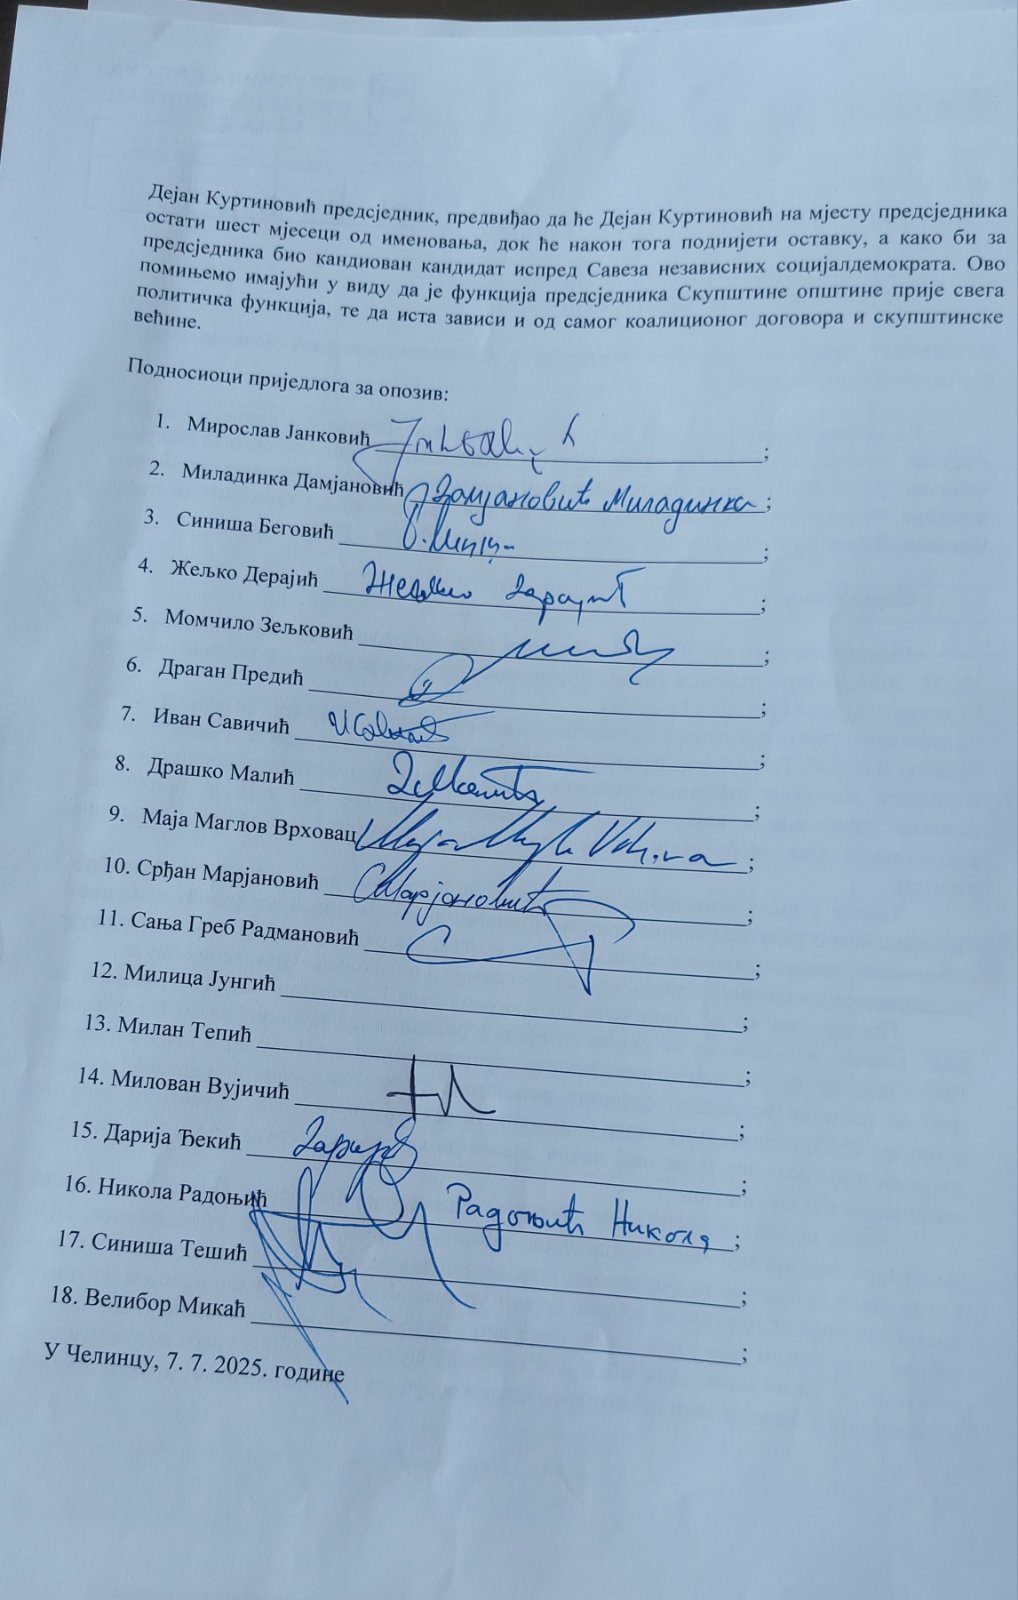 Дејан Куртиновић предсједник, предвиђао да ће Дејан Куртиновић на мјесту предсједника
остати шест мјесеци од именовања, док ће након тога поднијети оставку, а како би за
предсједника био кандиован кандидат испред Савеза независних социјалдемократа. Ово
помињемо имајући у виду да је функција предсједника Скупштине општине прије свега
политичка функција, те да иста зависи и од самог коалиционог договора и скупштинске
већине.
Подносиоци приједлога за опозив:
1. Мирослав Јанковић ;
2. Миладинка Дамјановић Дамјановић Миладинка ;
3. Синиша Беговић ;
4. Жељко Дерајић ;
5. Момчило Зељковић ;
6. Драган Предић ;
7. Иван Савичић ;
8. Драшко Малић ;
9. Маја Маглов Врховац ;
10. Срђан Марјановић С Марјановић ;
11. Сања Греб Радмановић ;
12. Милица Јунгић ;
13. Милан Тепић ;
14. Милован Вујичић ;
15. Дарија Ђекић ;
16. Никола Радоњић Радоњић Никола ;
17. Синиша Тешић ;
18. Велибор Микаћ ;
У Челинцу, 7. 7. 2025. године